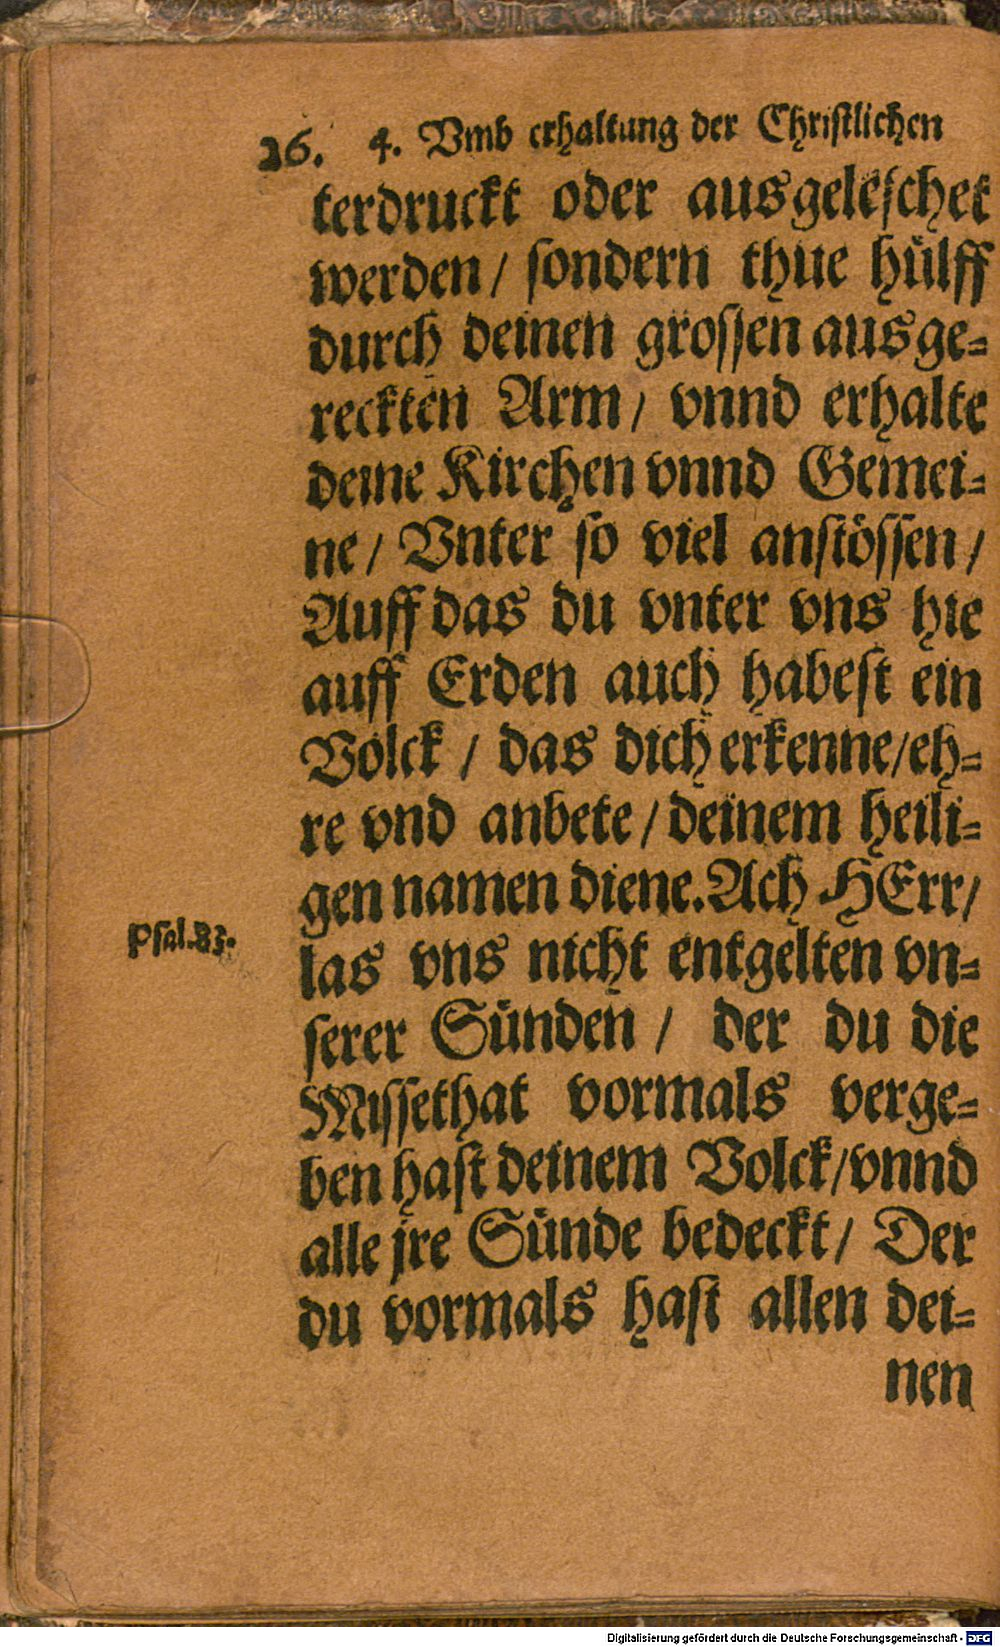 16. 4. Vmb erhaltung der Christlichen
terdruckt oder ausgeleschet
werden / sondern thue hülff
durch deinen grossen ausge=
reckten Arm / vnnd erhalte
deine Kirchen vnnd Gemei=
ne / Vnter so viel anstössen /
Auff das du vnter vns hie
auff Erden auch habest ein
Volck / das dich erkenne / eh=
re vnd anbete / deinem heili=
gen namen diene. Ach HErr /
Psal. 85.
las vns nicht entgelten vn=
serer Sünden / der du die
Missethat vormals verge=
ben hast deinem Volck / vnnd
alle jre Sünde bedeckt / Der
du vormals hast allen dei=
nen
Digitalisierung gefördert durch die Deutsche Forschungsgemeinschaft - DFG